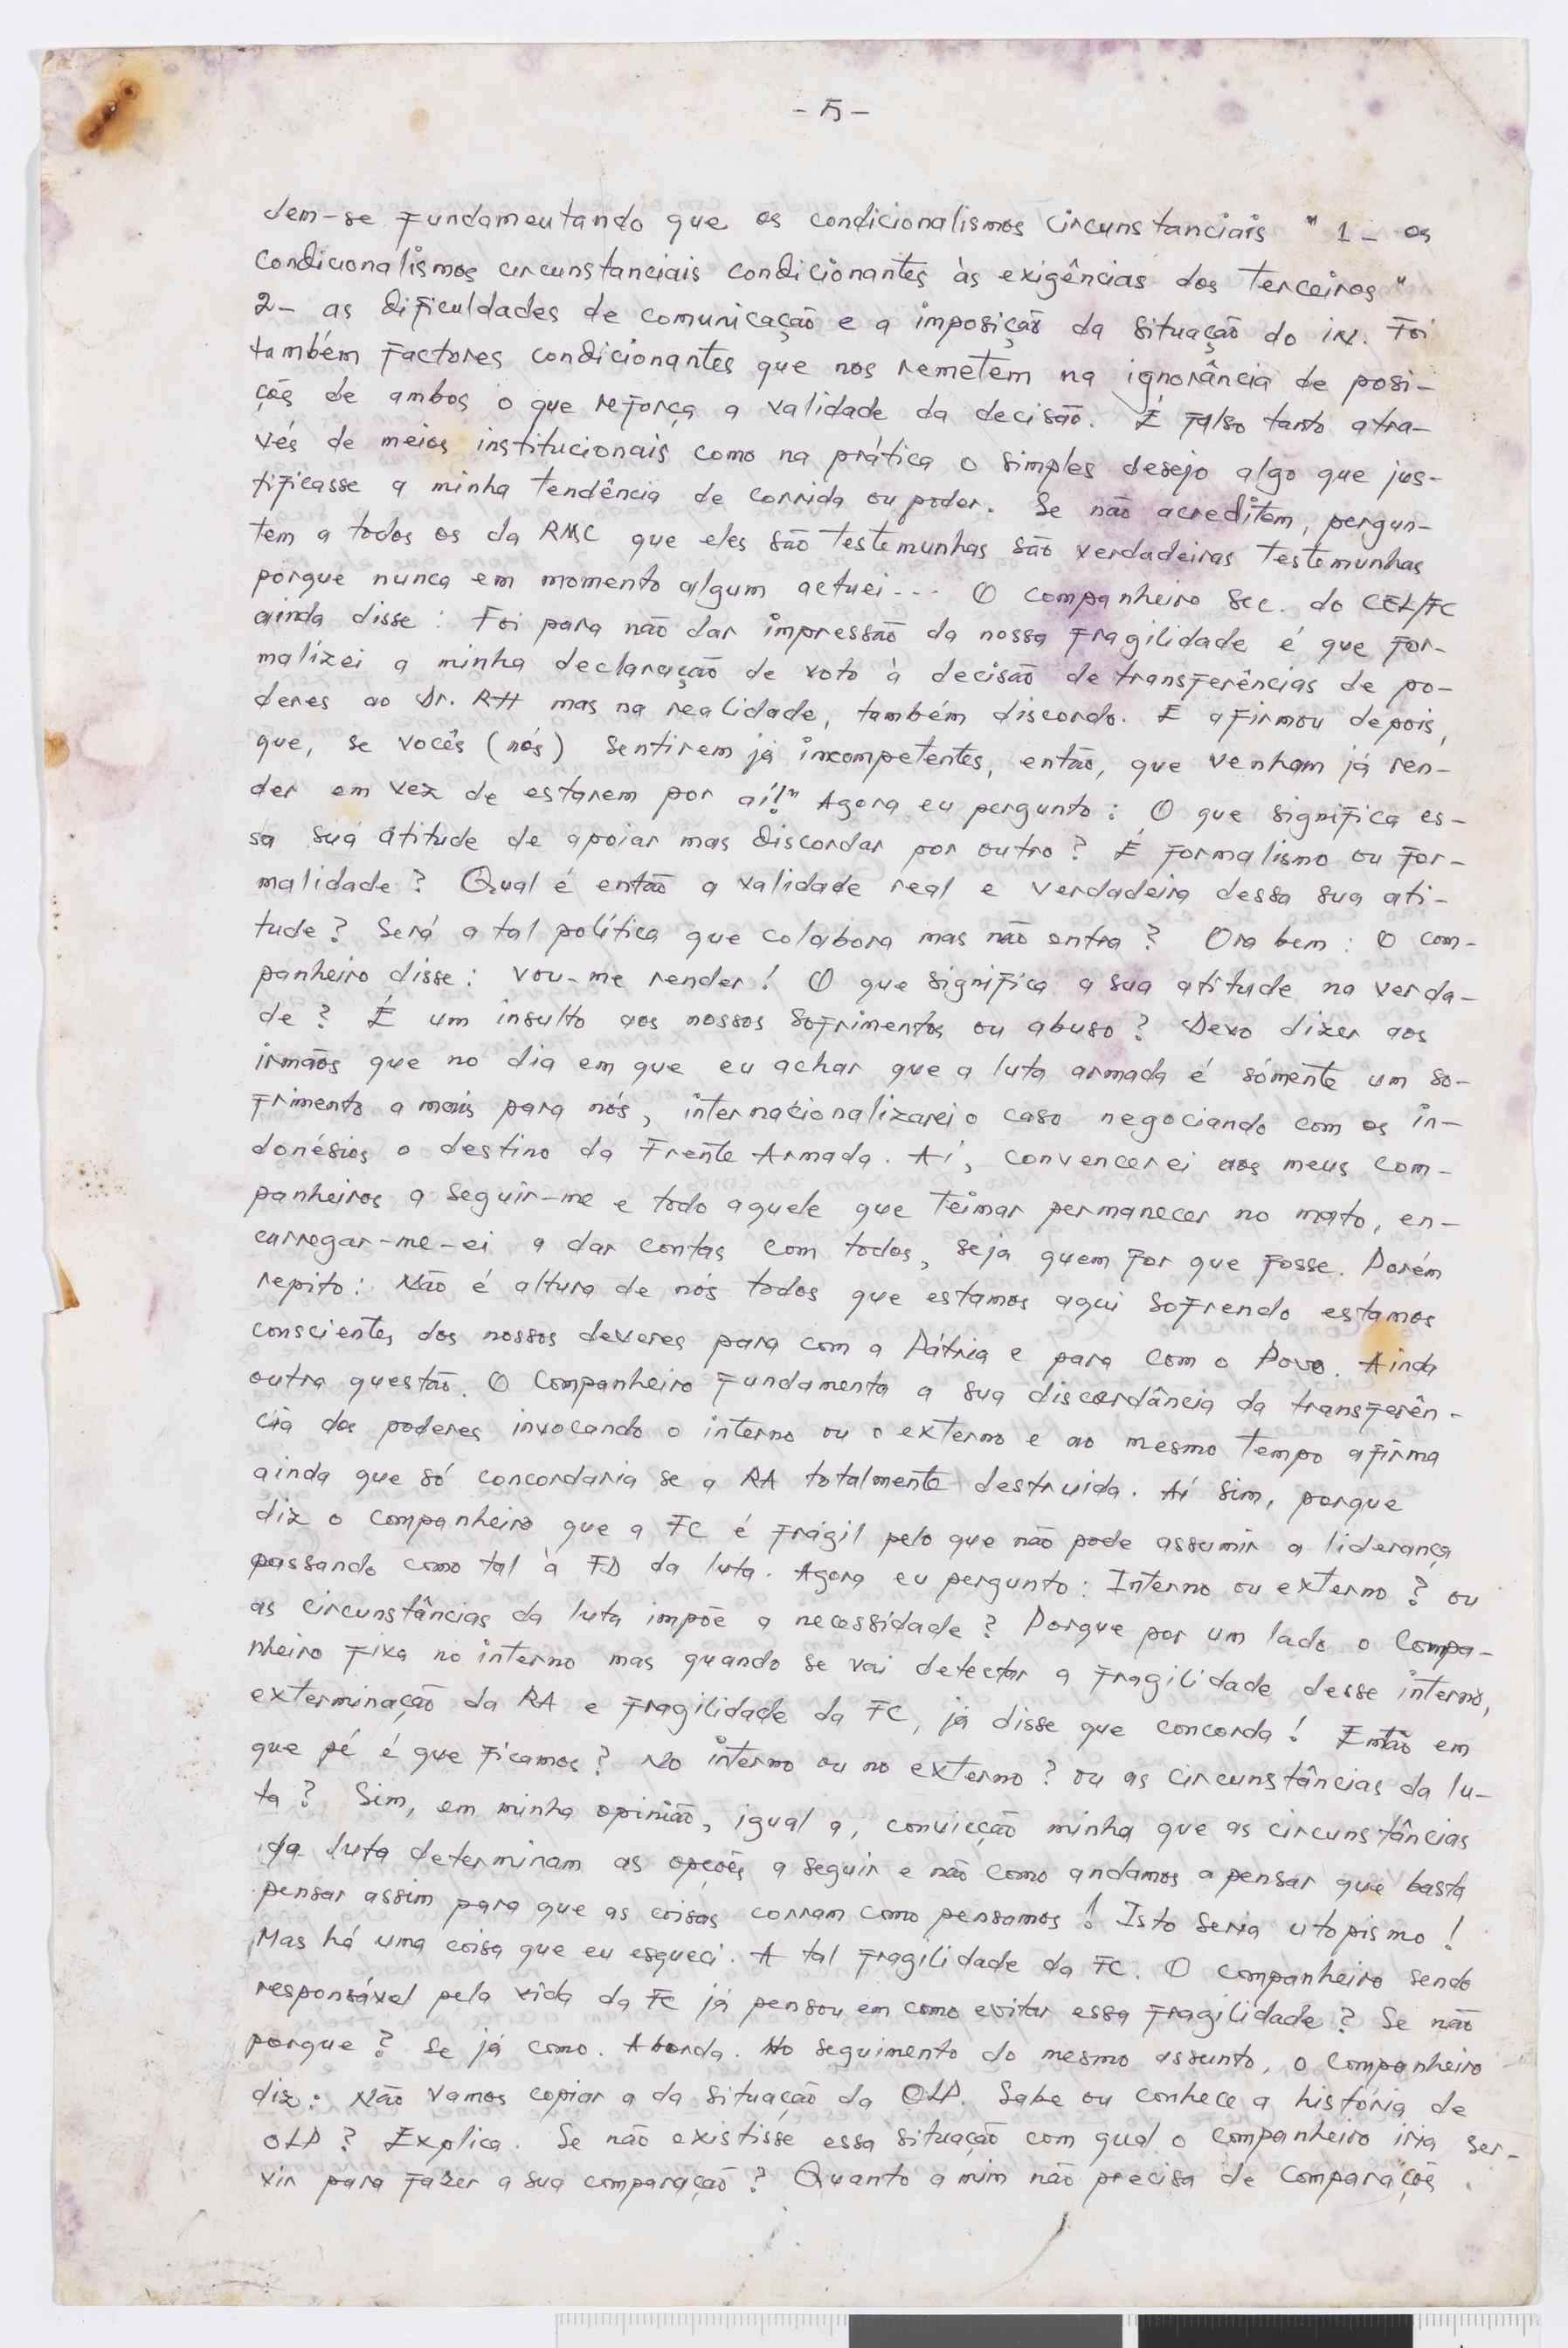 - 5 -
dem-se fundamentando que os condicionalismos circunstanciais " 1 - os
condicionalismos circunstanciais condicionantes às exigências dos terceiros "
2- as dificuldades de comunicação e a imposição da situação do in. Foi
também factores condicionantes que nos remetem na ignorância de posi-
ções de ambos o que reforça a validade da decisão. É falso tanto atra-
vés de meios institucionais como na prática o simples desejo algo que jus-
tificasse a minha tendência de corrida ou poder. Se não acreditem, pergun-
tem a todos os da RMC que eles são testemunhas são verdadeiras testemunhas
porque nunca em momento algum actuei... O companheiro Sec. do CEL/FC
ainda disse: Foi para não dar impressão da nossa fragilidade é que for-
malizei a minha declaração de voto à decisão de transferências de po-
deres ao Dr. RH mas na realidade, também discordo. E afirmou depois,
que, se vocês (nós) sentirem já incompetentes, então, que venham já ren-
der em vez de estarem por aí!" Agora eu pergunto: O que significa es-
sa sua atitude de apoiar mas discordar por outro? É formalismo ou for-
malidade? Qual é então a validade real e verdadeira dessa sua ati-
tude? Será a tal política que colabora mas não entra? Ora bem: O com-
panheiro disse: vou-me render! O que significa a sua atitude na verda-
de? É um insulto aos nossos sofrimentos ou abuso? Devo dizer aos
irmãos que no dia em que eu achar que a luta armada é sómente um so-
frimento a mais para nós, internacionalizarei o caso negociando com os in-
donésios o destino da Frente Armada. Aí, convencerei aos meus com-
panheiros a seguir-me e todo aquele que teimar permanecer no mato, en-
carregar-me-ei a dar contas com todos, seja quem for que fosse. Porém
repito: Não é altura de nós todos que estamos aqui sofrendo estamos
conscientes dos nossos deveres para com a Pátria e para com o Povo. Ainda
outra questão. O Companheiro fundamenta a sua discordância da transferên-
cia dos poderes invocando o interno ou o externo e ao mesmo tempo afirma
ainda que só concordaria se a RA totalmente destruida. Aí sim, porque
diz o companheiro que a FC é frágil pelo que não pode assumir a liderança
passando como tal à FD da luta. Agora eu pergunto: Interno ou externo? ou
as circunstâncias da luta impõe a necessidade? Porque por um lado o Compa-
nheiro fixa no interno mas quando se vai detectar a fragilidade desse interno,
exterminação da RA e fragilidade da FC, já disse que concorda! Então em
que pé é que ficamos? No interno ou no externo? ou as circunstâncias da lu-
ta? Sim, em minha opinião, igual a, convicção minha que as circunstâncias
da luta determinam as opções a seguir e não como andamos a pensar que basta
pensar assim para que as coisas corram como pensamos! Isto seria utopismo!
Mas há uma coisa que eu esqueci. A tal fragilidade da FC. O companheiro sendo
responsável pela vida da FC já pensou em como evitar essa fragilidade? Se não
porque? Se já como. Aborda. No seguimento do mesmo assunto, o Companheiro
diz: Não vamos copiar a da situação da OLP. Sabe ou conhece a história de
OLP? Explica. Se não existisse essa situação com qual o companheiro iria ser-
vir para fazer a sua comparação? Quanto a mim não precisa de comparações.